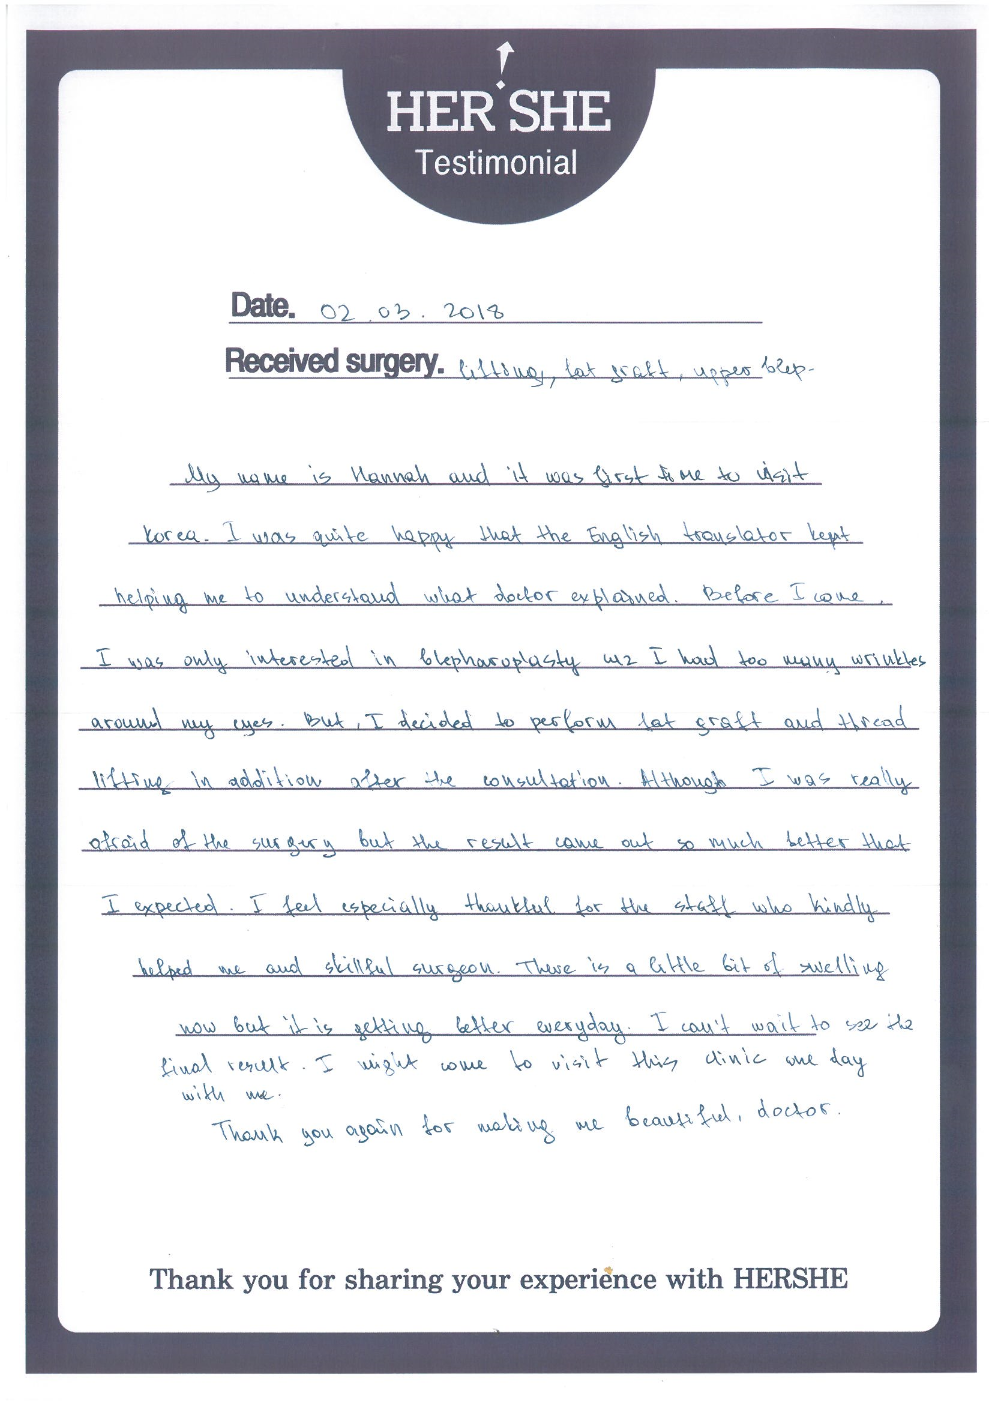 HER SHE
Testimonial
Date. 02. 03. 2018
Received surgery. lifting, fat graft, upper blep.
My name is Hannah and it was first time to visit
Korea. I was quite happy that the English translator kept
helping me to understand what doctor explained. Before I come,
I was only interested in blepharoplasty I had too many wrinkles
around my eyes. But, I decided to perform fat graft and thread
lifting in addition after the consultation. Although I was really
afraid of the surgery but the result came out so much better that
I expected. I feel especially thankful for the staff who kindly
helped me and skillful surgeon. There is a little bit of swelling
now but it is getting better everyday. I can't wait to see the
final result. I might come to visit this clinic one day
with me.
Thank you again for making me beautiful, doctor.
Thank you for sharing your experience with HERSHE